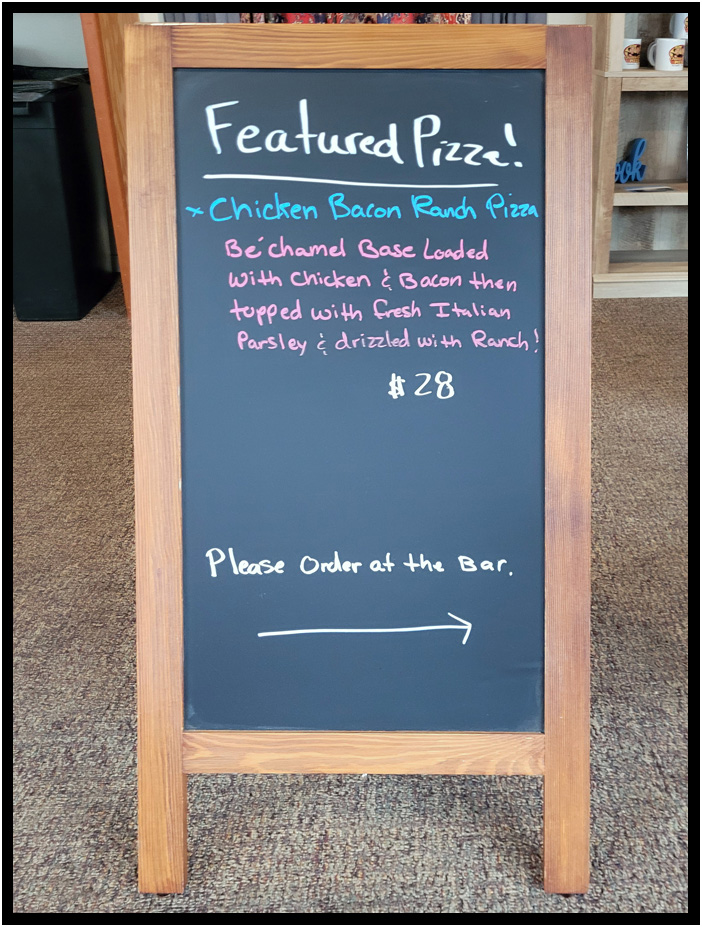 Featured Pizza!
* Chicken Bacon Ranch Pizza
Béchamel Base Loaded
with Chicken & Bacon then
topped with fresh Italian
Parsley & drizzled with Ranch!
$28
Please Order at the Bar.
ook